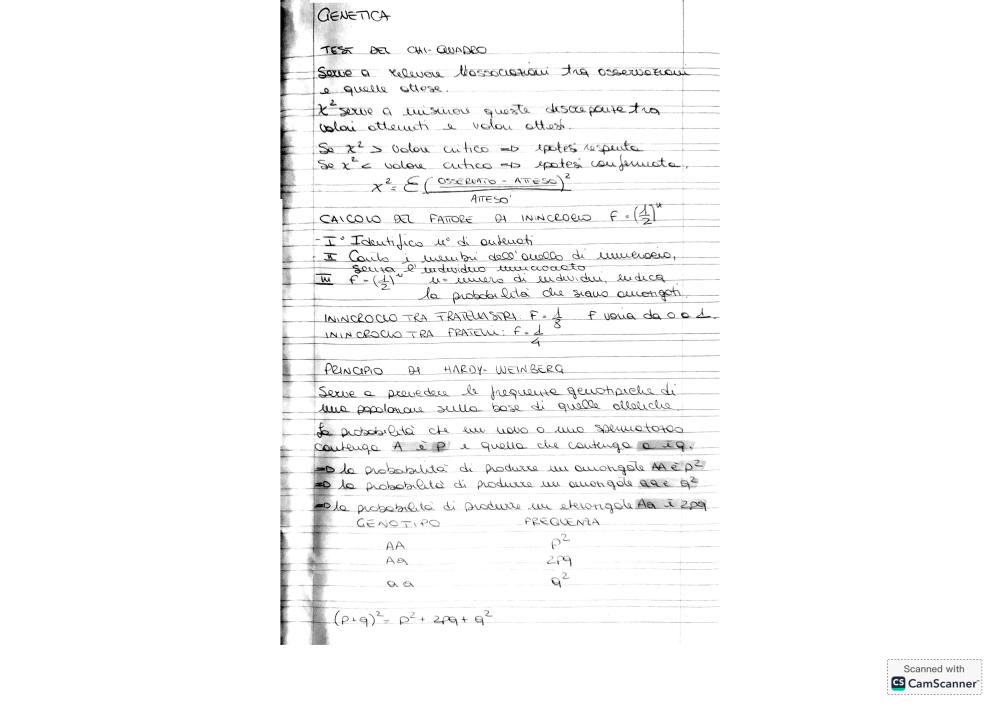 GENETICA
TEST DEL CHI-QUADRO
Serve a rilevare l'associazioni tra osservazioni
e quelle attese.
X² serve a misurare queste discrepanze tra
valori ottenuti e valori attesi.
Se x² > valore critico => ipotesi respinta
Se x² < valore critico => ipotesi confermata.
X² = Σ (OSSERVATO - ATTESO)²
ATTESO
CALCOLO DEL FATTORE DI ININCROCIO F = (1/2)ⁿ
- I° Identifico n° di antenati
- II Conto i membri dell'anello di inincrocio,
senza l'individuo inincrociato
III F = (1/2)ⁿ n = numero di individui, indica
la probabilità che siano omozigoti.
ININCROCIO TRA FRATELLASTRI: F = 1/8 F varia da 0 a 1.
ININCROCIO TRA FRATELLI: F = 1/4
PRINCIPIO DI HARDY-WEINBERG
Serve a prevedere le frequenze genotipiche di
una popolazione sulla base di quelle alleliche.
La probabilità che un uovo o uno spermatozoo
contenga A è p e quella che contenga a è q.
=> la probabilità di produrre un omozigote AA è p²
=> la probabilità di produrre un omozigote aa è q²
=> la probabilità di produrre un eterozigote Aa è 2pq
GENOTIPO FREQUENZA
AA p²
Aa 2pq
aa q²
(p+q)² = p² + 2pq + q²
Scanned with
CS CamScanner